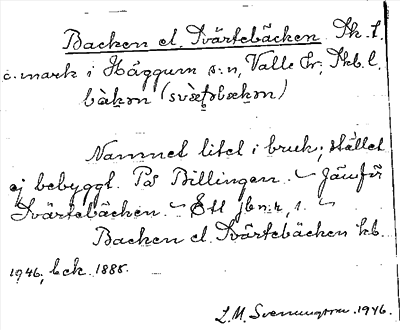 Backen el. Svärtebäcken Sk. l.
c. mark i Häggum s:n, Valle hr, Skb. l.
bàkən (svæ̀ʈəbækən)
Namnet litet i bruk; stället
ej bebyggt. På Billingen. – Jämför
Svärtebäcken. – Ett jbnr, 1. –
Backen el. Svärtebäcken kb.
1946, bck. 1885.
1946.